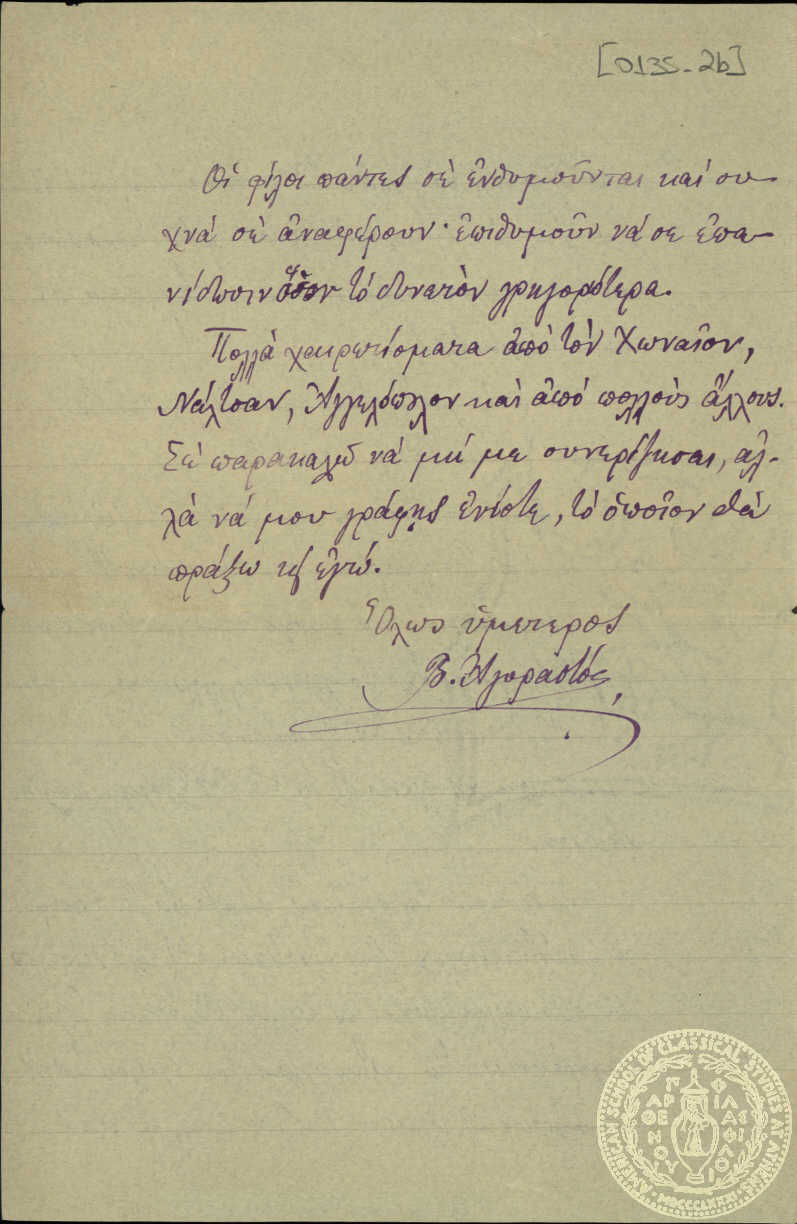 [0135-2b]
Οἱ φίλοι πάντες σὲ ἐνθυμοῦνται καὶ συ-
χνὰ σὲ ἀναφέρουν· ἐπιθυμοῦν νά σε ἐπα-
νίδωσιν ὅσον τὸ δυνατὸν γρηγορότερα.
Πολλὰ χαιρετίσματα ἀπὸ τὸν Χωναῖον,
Νάλτσαν, Ἀγγελόπουλον καὶ ἀπὸ πολλοὺς ἄλλους.
Σὲ παρακαλῶ νὰ μή με συνερίζησαι, ἀλ-
λὰ νά μου γράφῃς ἐνίοτε, τὸ ὁποῖον θὰ
πράξω κ' ἐγώ.
Ὅλως ὑμέτερος
Β. Ἀγοραστός
AMERICAN SCHOOL OF CLASSICAL STUDIES AT ATHENS
ΠΑΡΘΕΝΟΥ ΦΙΛΑΣ ΦΙΛΟ
MDCCCLXXXI